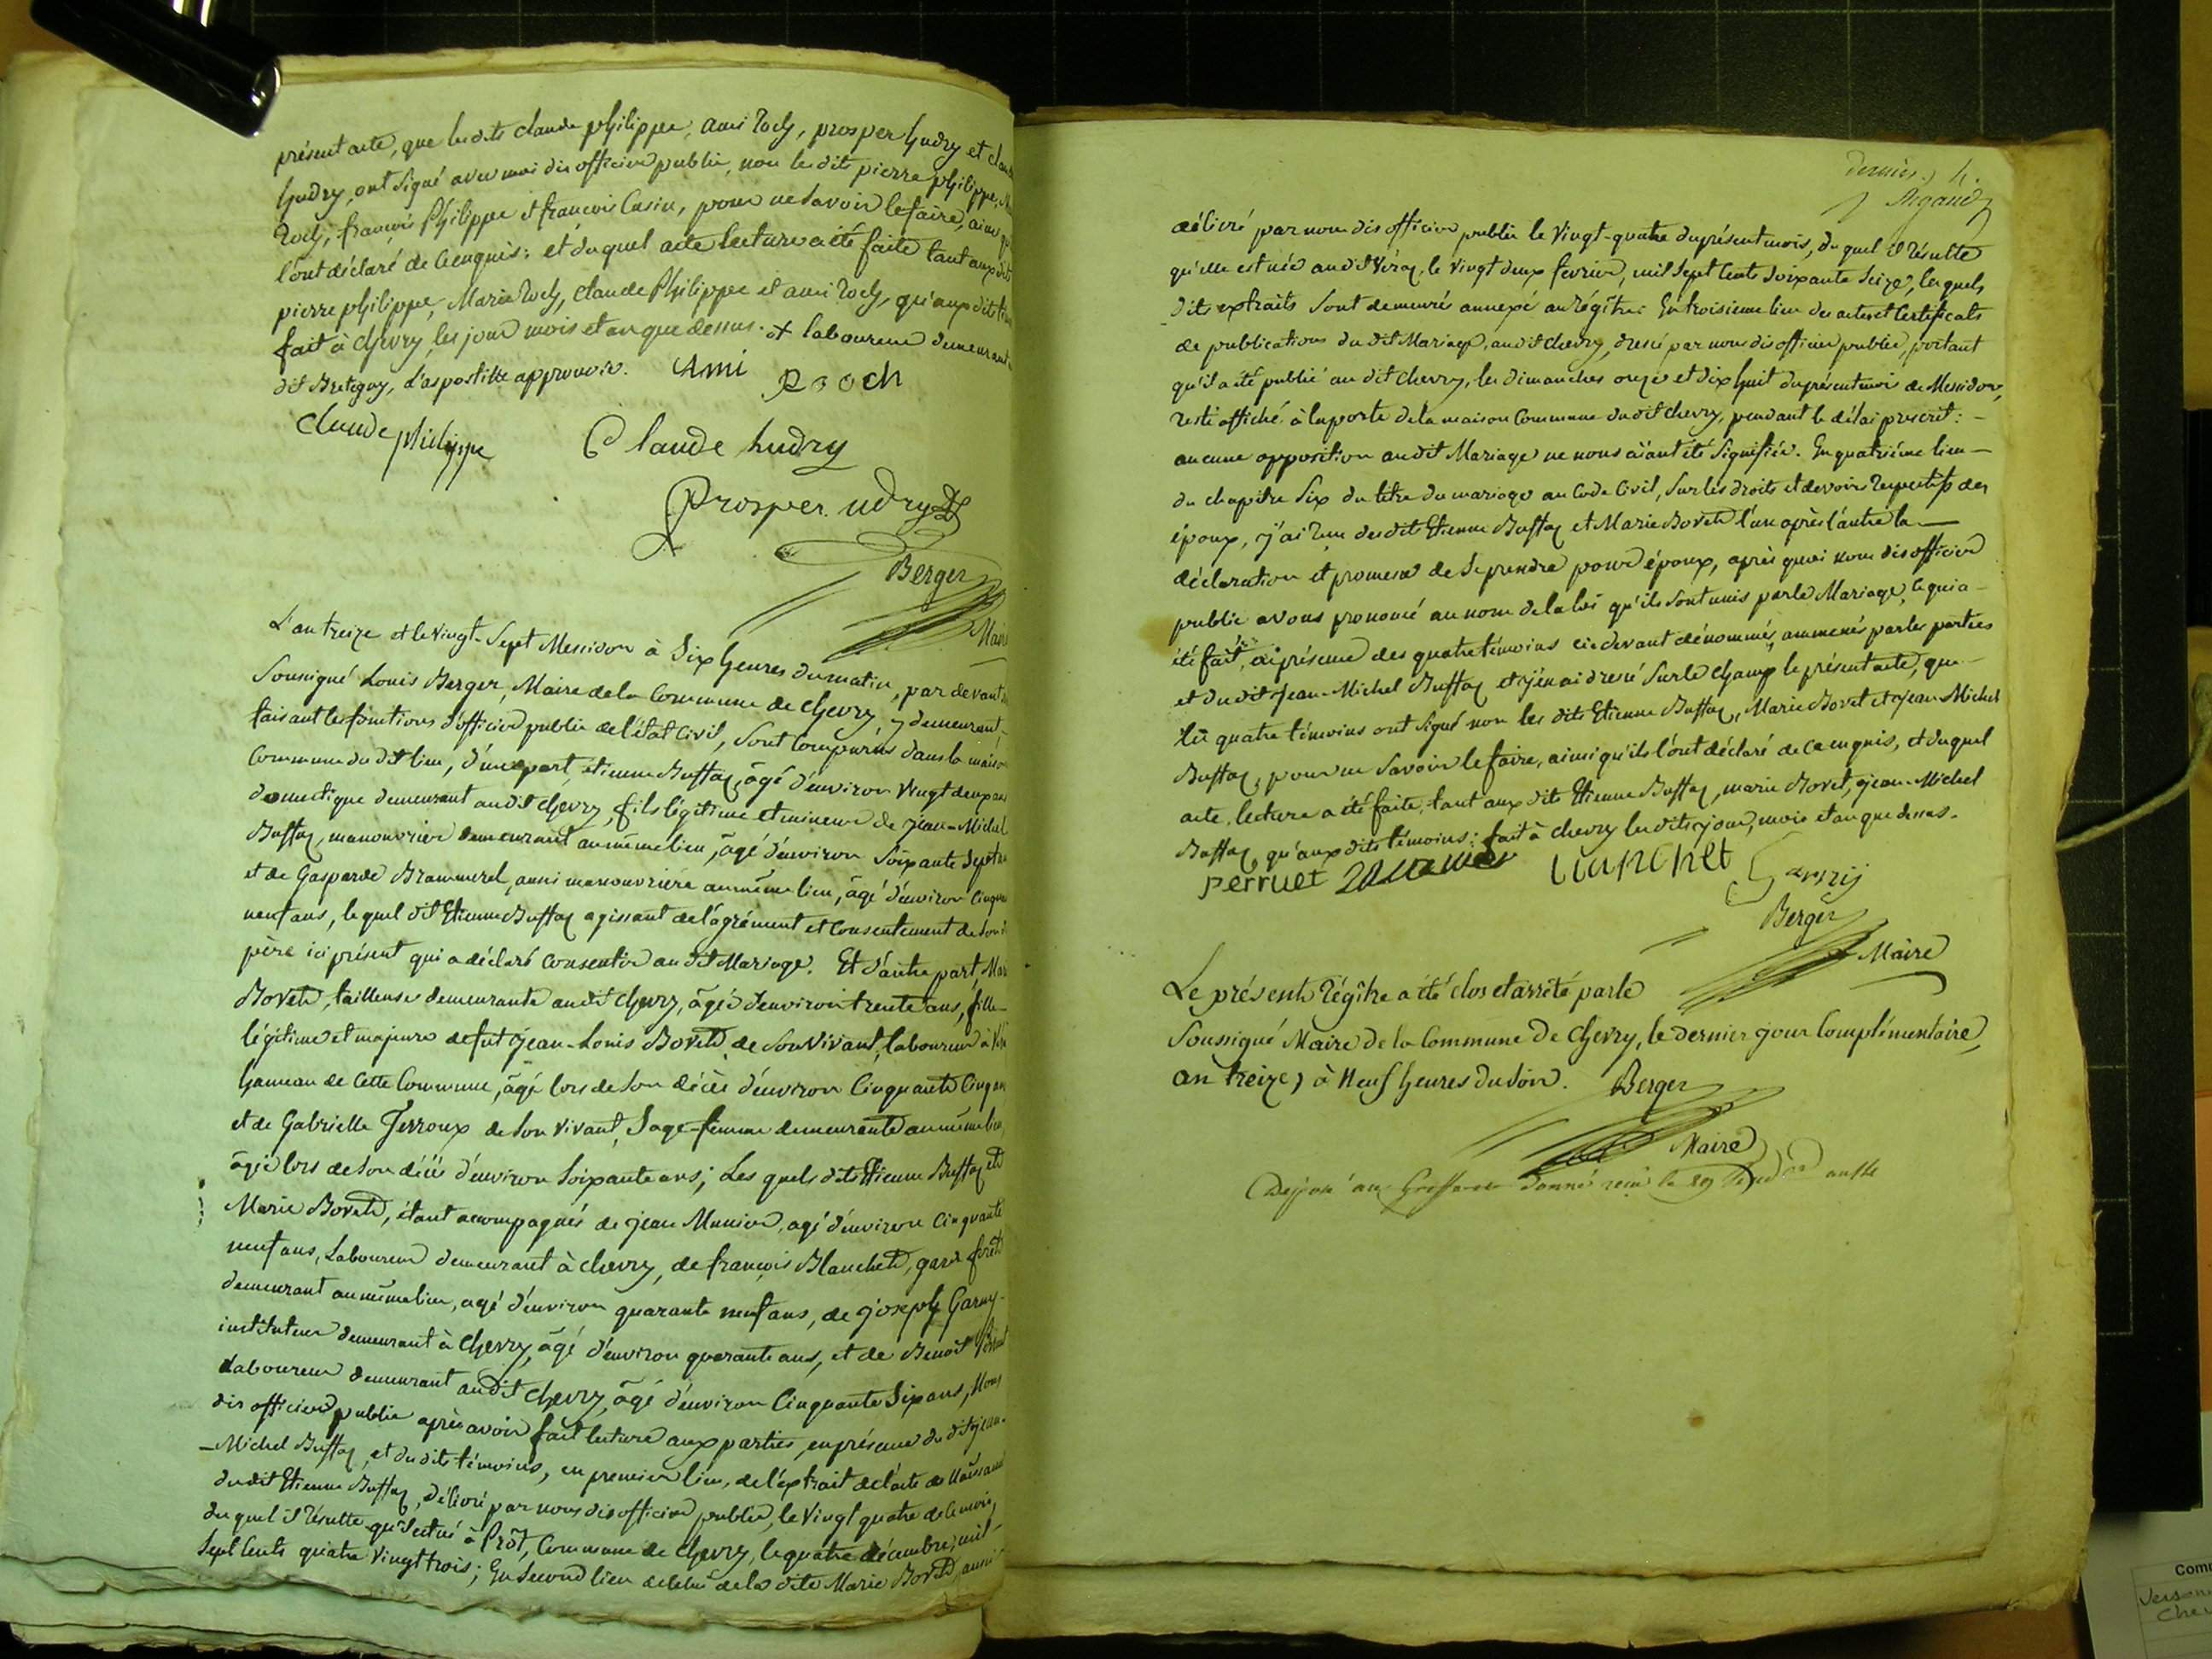 présent acte, que les dits claude philippe, ami Roch, prosper hudry et clau
hudry, ont signé avec moi dis officier public, non les dits pierre philippe, Ma
Roch, françois Philippe et françois Casin, pour ne savoir le faire, ainsi qu
l'ont déclaré de ce enquis: et duquel acte lecture a été faite tant aux dits
pierre philippe, Marie Roch, claude Philippe et ami Roch, qu'aux dits tém
fait à chevry, les jour mois et an que dessus. + laboureur demeurant
dit Bretigny, L'apostille approuvée. Ami Rooch
claude philippe Claude hudry
Prosper udry
Berger
Maire
L'an treize et le vingt-sept Messidor à six heures du matin, par devant
Soussigné Louis Berger, Maire de la Commune de chevry y demeurant
faisant les fonctions d'officier public de l'état civil, sont comparus dans la maison
Commune du dit lieu, d'une part, étienne Buffaz, âgé d'environ vingt deux ans
domestique demeurant au dit chevry, fils légitime et mineur de jean-Michel
Buffaz, manouvrier demeurant au même lieu, âgé d'environ soixante sept ans
et de Gasparde Brammerel, aussi manouvrière au même lieu, âgé d'environ cinquante
neuf ans, lequel dit Etienne Buffaz agissant de l'agrément et consentement de son
père ici présent qui a déclaré consentir au dit Mariage. Et d'autre part, Mar
Bovet, tailleuse demeurante au dit chevry, âgée d'environ trente ans, fille
légitime et majeure de fut jean-Louis Bovet de son vivant, laboureur à Vér
hameau de cette Commune, âgé lors de son décès d'environ cinquante cinq ans
et de Gabrielle Jerroux de son vivant, sage-femme demeurante au même lieu,
âgée lors de son décès d'environ soixante ans; Les quels dits Etienne Buffaz et
Marie Bovet, étant acompagnés de jean Munier, agé d'environ cinquante
neuf ans, Laboureur demeurant à chevry, de françois Blanchet, garde forêt
demeurant au même lieu, agé d'environ quarante neuf ans, de joseph Garny
instituteur demeurant à chevry, âgé d'environ quarante ans, et de Benoît
Laboureur demeurant au dit chevry, âgé d'environ cinquante six ans, Nous
dis officier public après avoir fait lecture aux parties, en présence du dit jean
-Michel Buffaz, et du dits témoins, en premier lieu, de l'extrait de l'acte de Naissance
du dit Etienne Buffaz, délivré par nous dis officier public, le vingt quatre de ce mois,
du quel il résulte qu'il est né à Prôt, Commune de chevry, le quatre décembre, mil
sept cents quatre vingt trois; En second lieu de celui de la dite Marie Bovet, aussi
dernier. 4.
Rigaud
délivré par nous dis officier public le vingt-quatre du présent mois, du quel il résulte
qu'elle est née au dit Véraz, le vingt deux fevrier, mil sept cents soixante seize, les quels
dits extraits sont demeurés annexé au régitre. En troisieme lieu des actes et Certificats
de publications du dit Mariage, au dit chevry, dressé par nous dis officier public, portant
qu'il a été publié au dit chevry, les dimanches onze et dix huit du présent mois de Messidor,
resté affiché à la porte de la maison Commune du dit chevry, pendant le délai prescrit:
aucune opposition au dit Mariage ne nous aïant été signifiée. En quatrième lieu
du chapitre six du titre du mariage au Code Civil, sur les droits et devoirs respectifs des
époux, j'ai reçu des dits Etienne Buffaz et Marie Bovet l'un après l'autre la
déclaration et promesse de se prendre pour époux, après quoi nous dis officier
public avons prononcé au nom de la loi qu'ils sont unis par le Mariage, ce qui a
été fait, en présence des quatre témoins ci devant dénommés, ammenés par les parties
et du dit jean-Michel Buffaz et j'en ai dressé sur le champ le présent acte, que
les quatre témoins ont signé non les dits Etienne Buffaz, Marie Bovet et jean Michel
Buffaz, pour ne savoir le faire, ainsi qu'ils l'ont déclaré de ce enquis, et duquel
acte, lecture a été faite, tant aux dits Etienne Buffaz, marie Bovet, jean-Michel
Buffaz, qu'aux dits témoins: fait à chevry les dits jour, mois et an que dessus.
perruet Garnij
Berger
Maire
Le présent régitre a été clos et arrêté par le
Soussigné Maire de la Commune de chevry, le dernier jour Complémentaire,
an treize, à Neuf heures du soir. Berger
Maire
Déposé au Greffe donné reçu le 29